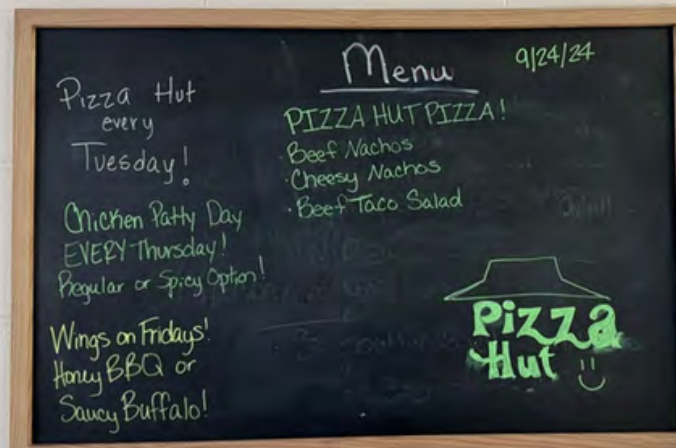 Menu
9/24/24
Pizza Hut
every
Tuesday!
Chicken Patty Day
EVERY Thursday!
Regular or Spicy Option!
Wings on Fridays!
Honey BBQ or
Saucy Buffalo!
PIZZA HUT PIZZA!
· Beef Nachos
· Cheesy Nachos
· Beef Taco Salad
Pizza
Hut